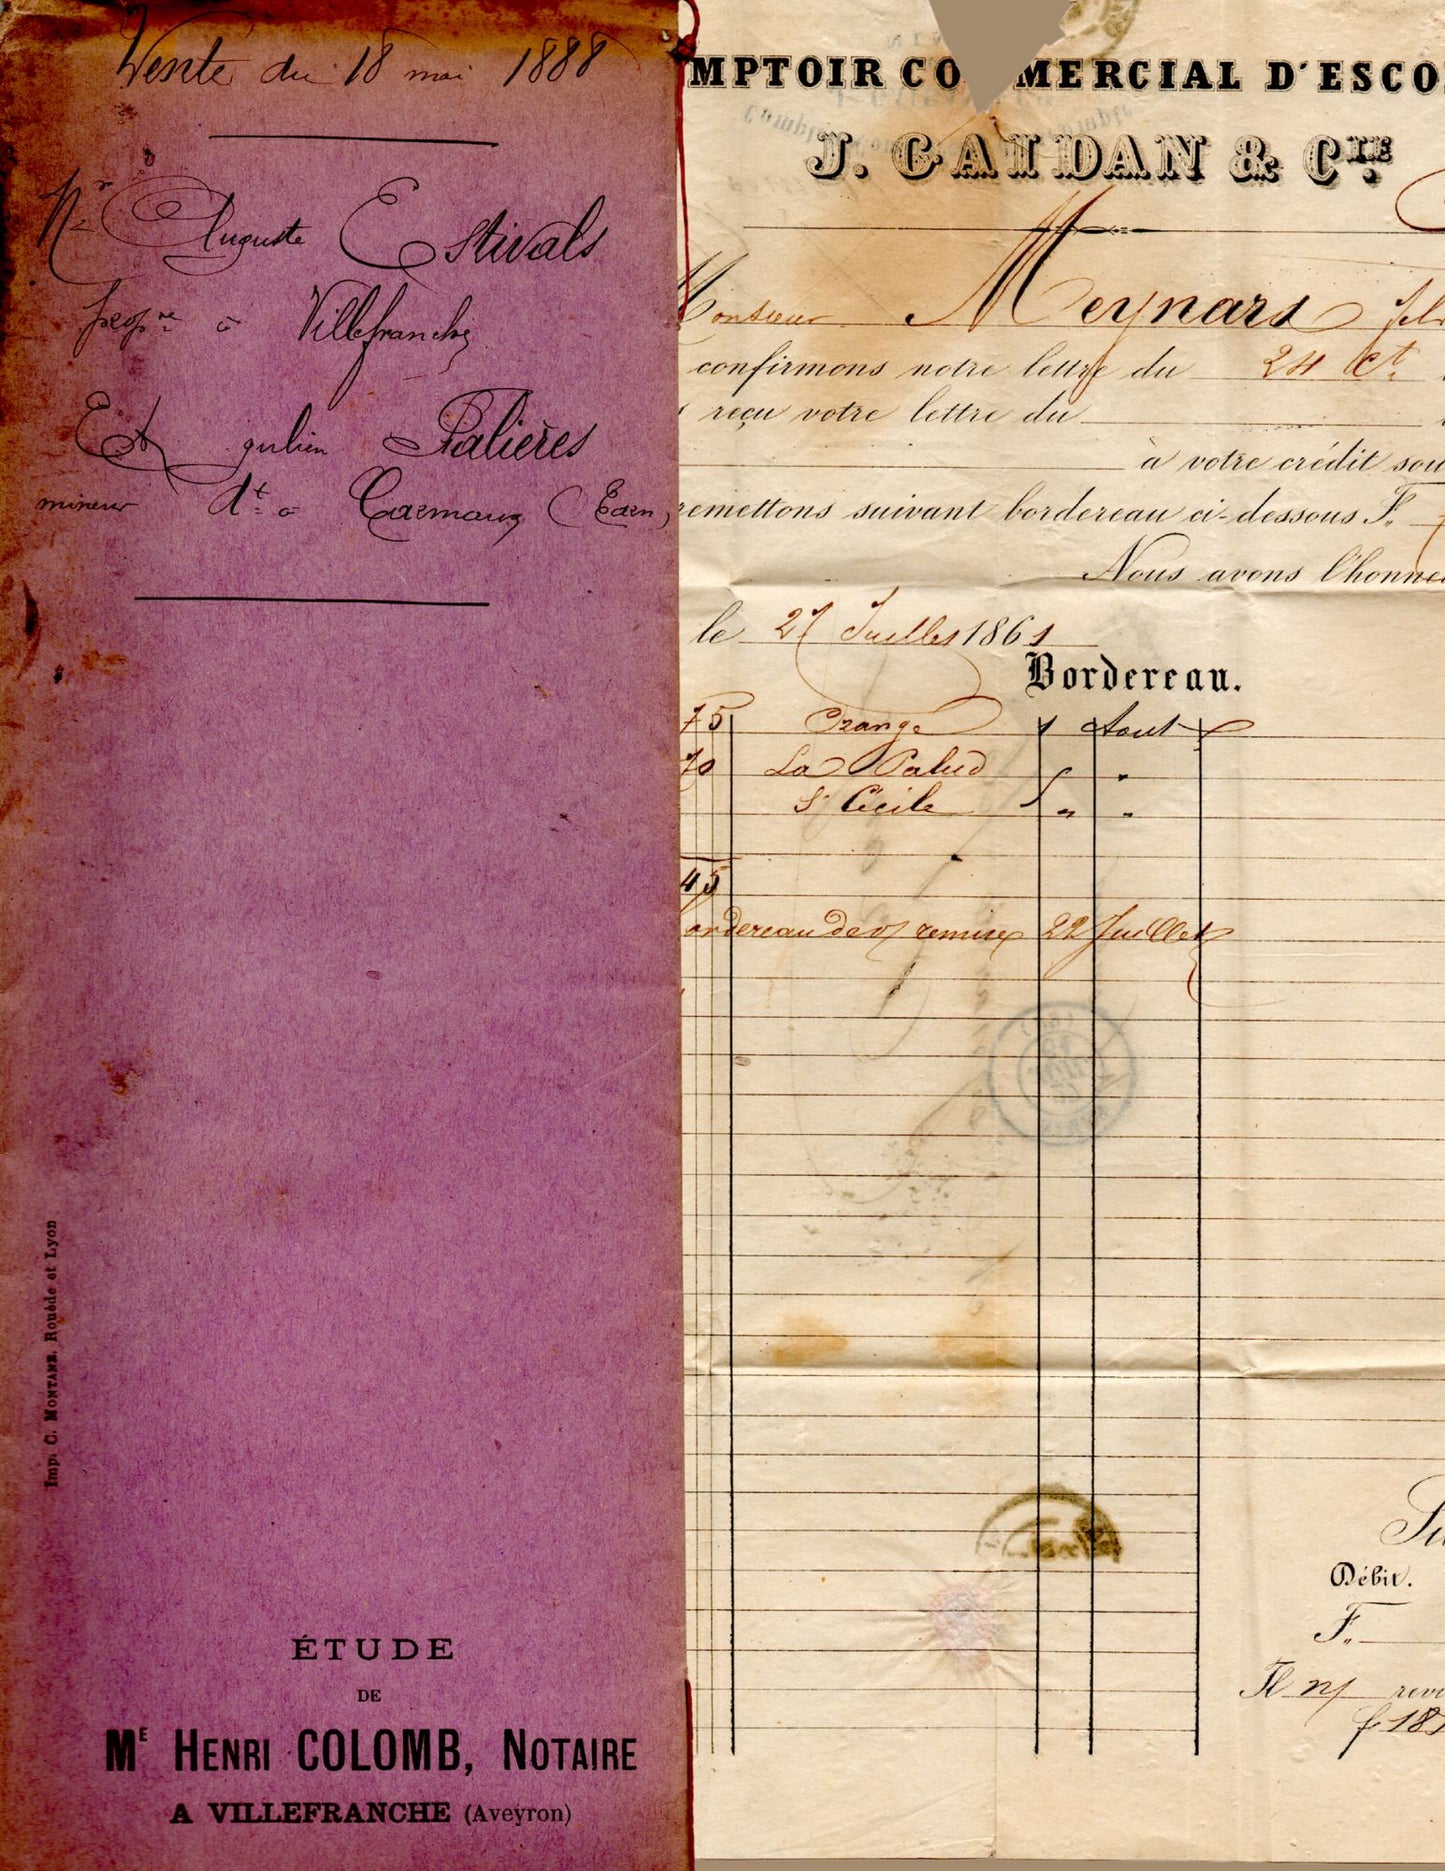 Vente du 18 mai 1888
Mr Auguste Estivals
propre à Villefranche
Et julien Palières
mineur dt à Carmaux (Tarn)
Imp. C. MONTANE, Rouède et Lyon
ÉTUDE
DE
ME HENRI COLOMB, NOTAIRE
A VILLEFRANCHE (Aveyron)
MPTOIR COMMERCIAL D'ESCO
J. GAIDAN & CIE
Monsieur Meynard
confirmons notre lettre du 24 ct
reçu votre lettre du
à votre crédit sou
remettons suivant bordereau ci-dessous F.
Nous avons l'honne
le 27 Juillet 1861
Bordereau.
75 Orange 1 Aout
70 La Palud " "
St Cécile " "
45
ordereau de v/ remise 22 Juillet
Débit.
F.
n/
f 18